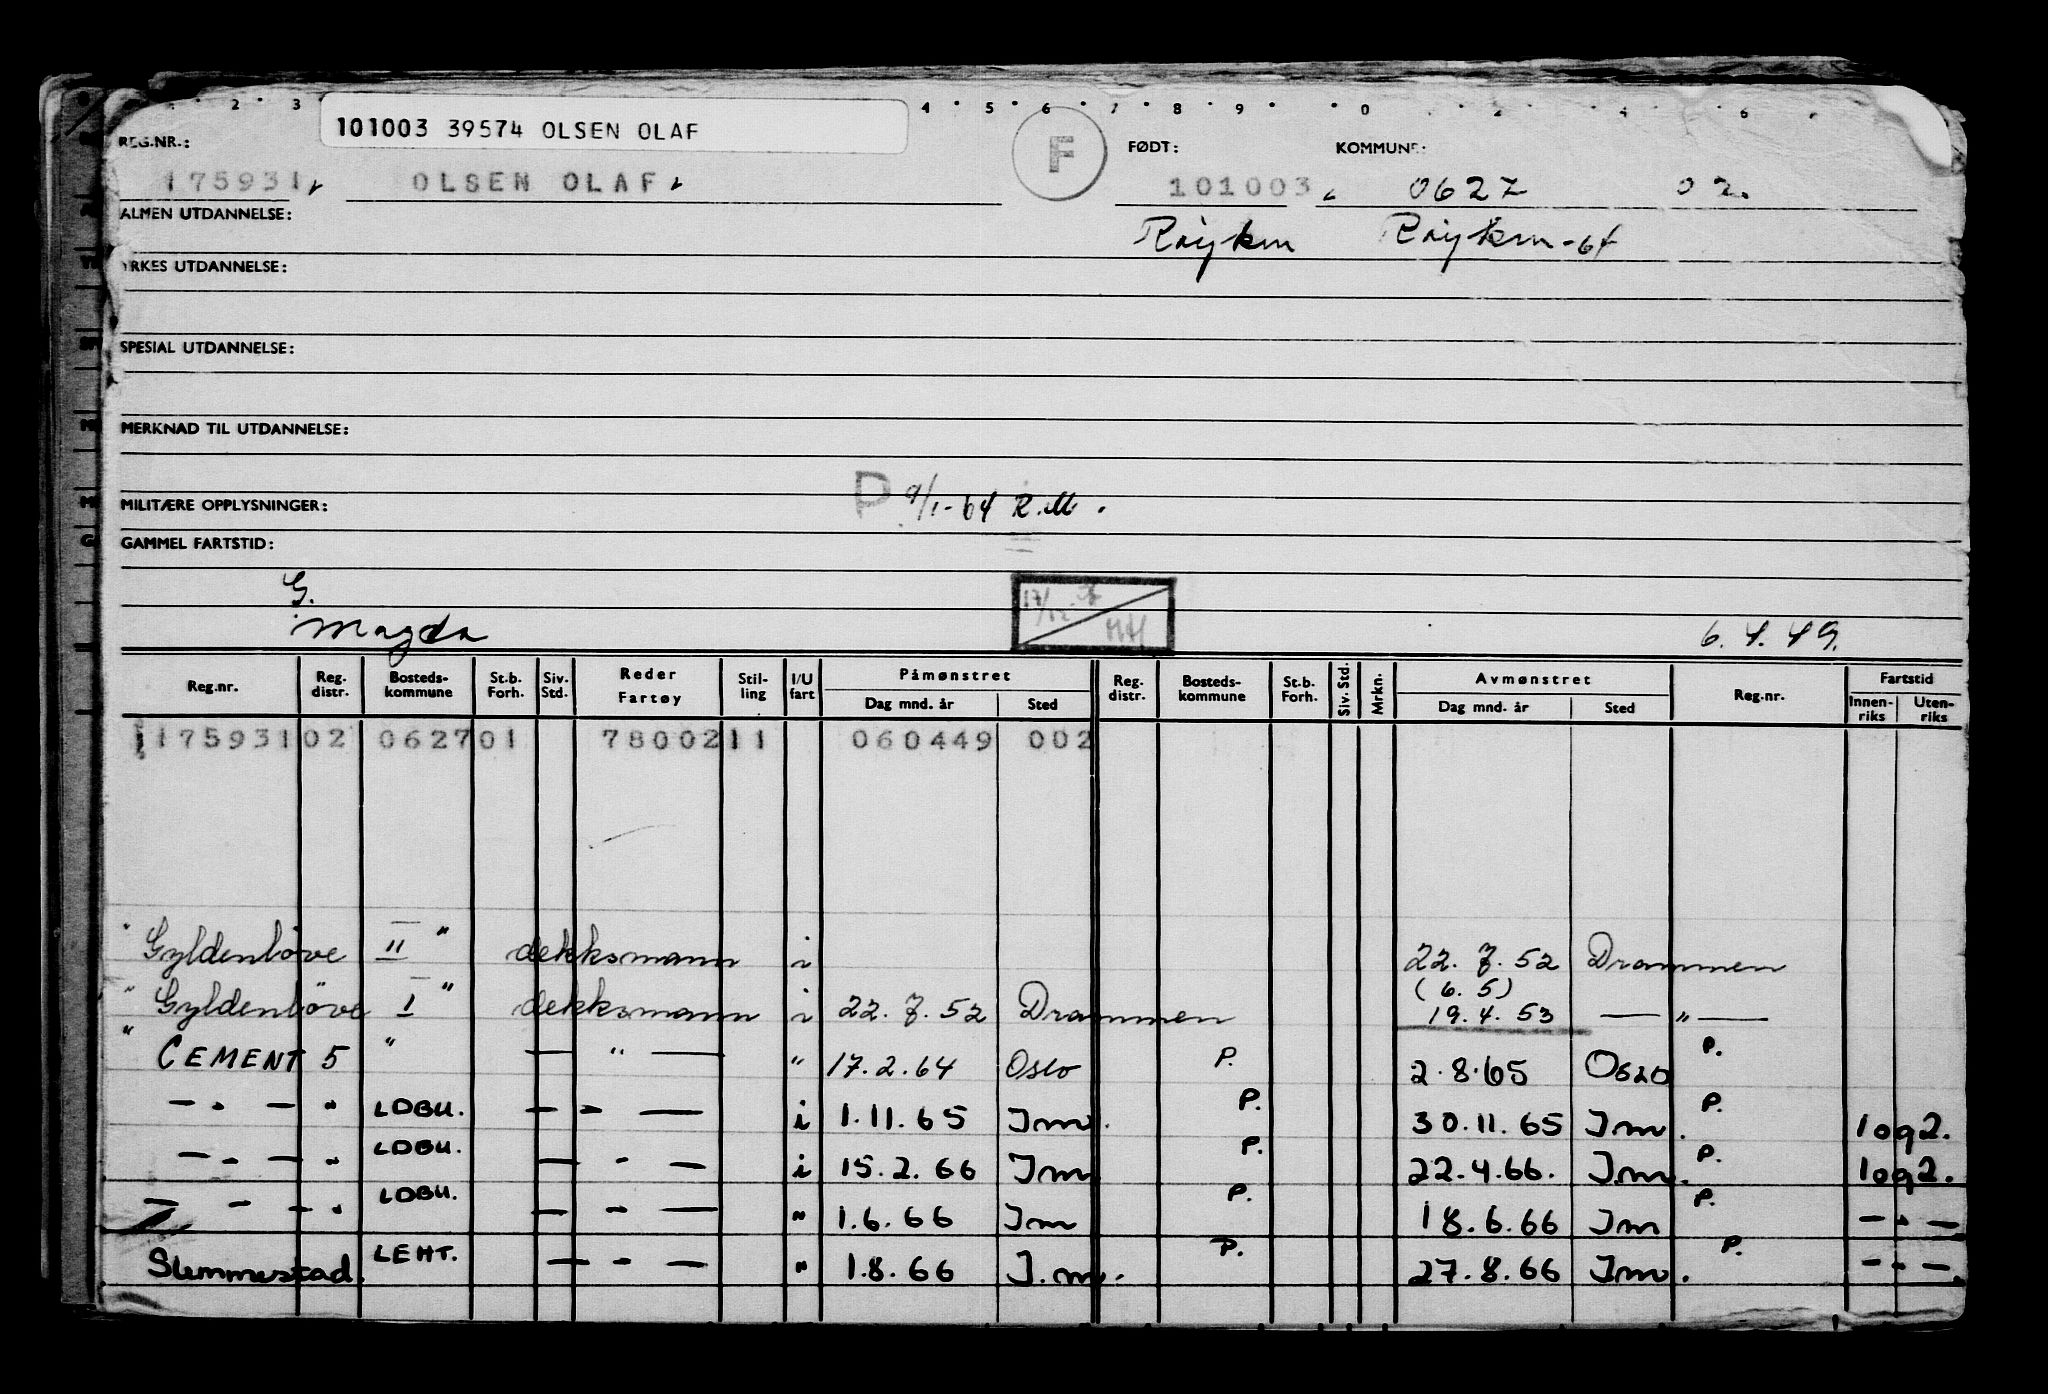 2 3 4 5 6 7 8 9 0 2 4 6
101003 39574 OLSEN OLAF
REG.NR.: F FØDT: KOMMUNE:
175931 OLSEN OLAF 101003 0627 02.
ALMEN UTDANNELSE: Røyken Røyken-64
YRKES UTDANNELSE:
SPESIAL UTDANNELSE:
MERKNAD TIL UTDANNELSE:
MILITÆRE OPPLYSNINGER: P 9/1-64 R.M.
GAMMEL FARTSTID:
G.
Magda 17/12 6.4.49.
Reg.nr. Reg. distr. Bosteds- kommune St.b. Forh. Siv. Std. Reder Fartøy Stil- ling I/U fart Påmønstret Dag mnd. år Sted Reg. distr. Bosteds- kommune St.b. Forh. Siv. Std. Mrkn. Avmønstret Dag mnd. år Sted Reg.nr. Fartstid Innen- riks Uten- riks
175931 02 0627 01 7800211 060449 002
" Gyldenløve II " dekksmann i 22.7.52 Drammen
" Gyldenløve I " dekksmann i 22.7.52 Drammen (6.5) 19.4.53 — " —
" CEMENT 5 " — " — " 17.2.64 Oslo P. 2.8.65 Oslo P.
— " — " LDBU. — " — i 1.11.65 Im. P. 30.11.65 Im. P. 1 og 2.
— " — " LDBU. — " — i 15.2.66 Im P. 22.4.66. Im. P. 1 og 2.
— " — " LDBU. — " — " 1.6.66 Im P. 18.6.66 Im P. — " —
Slemmestad. LEHT. — " — " 1.8.66 I.m. P. 27.8.66 Im. P. — " —